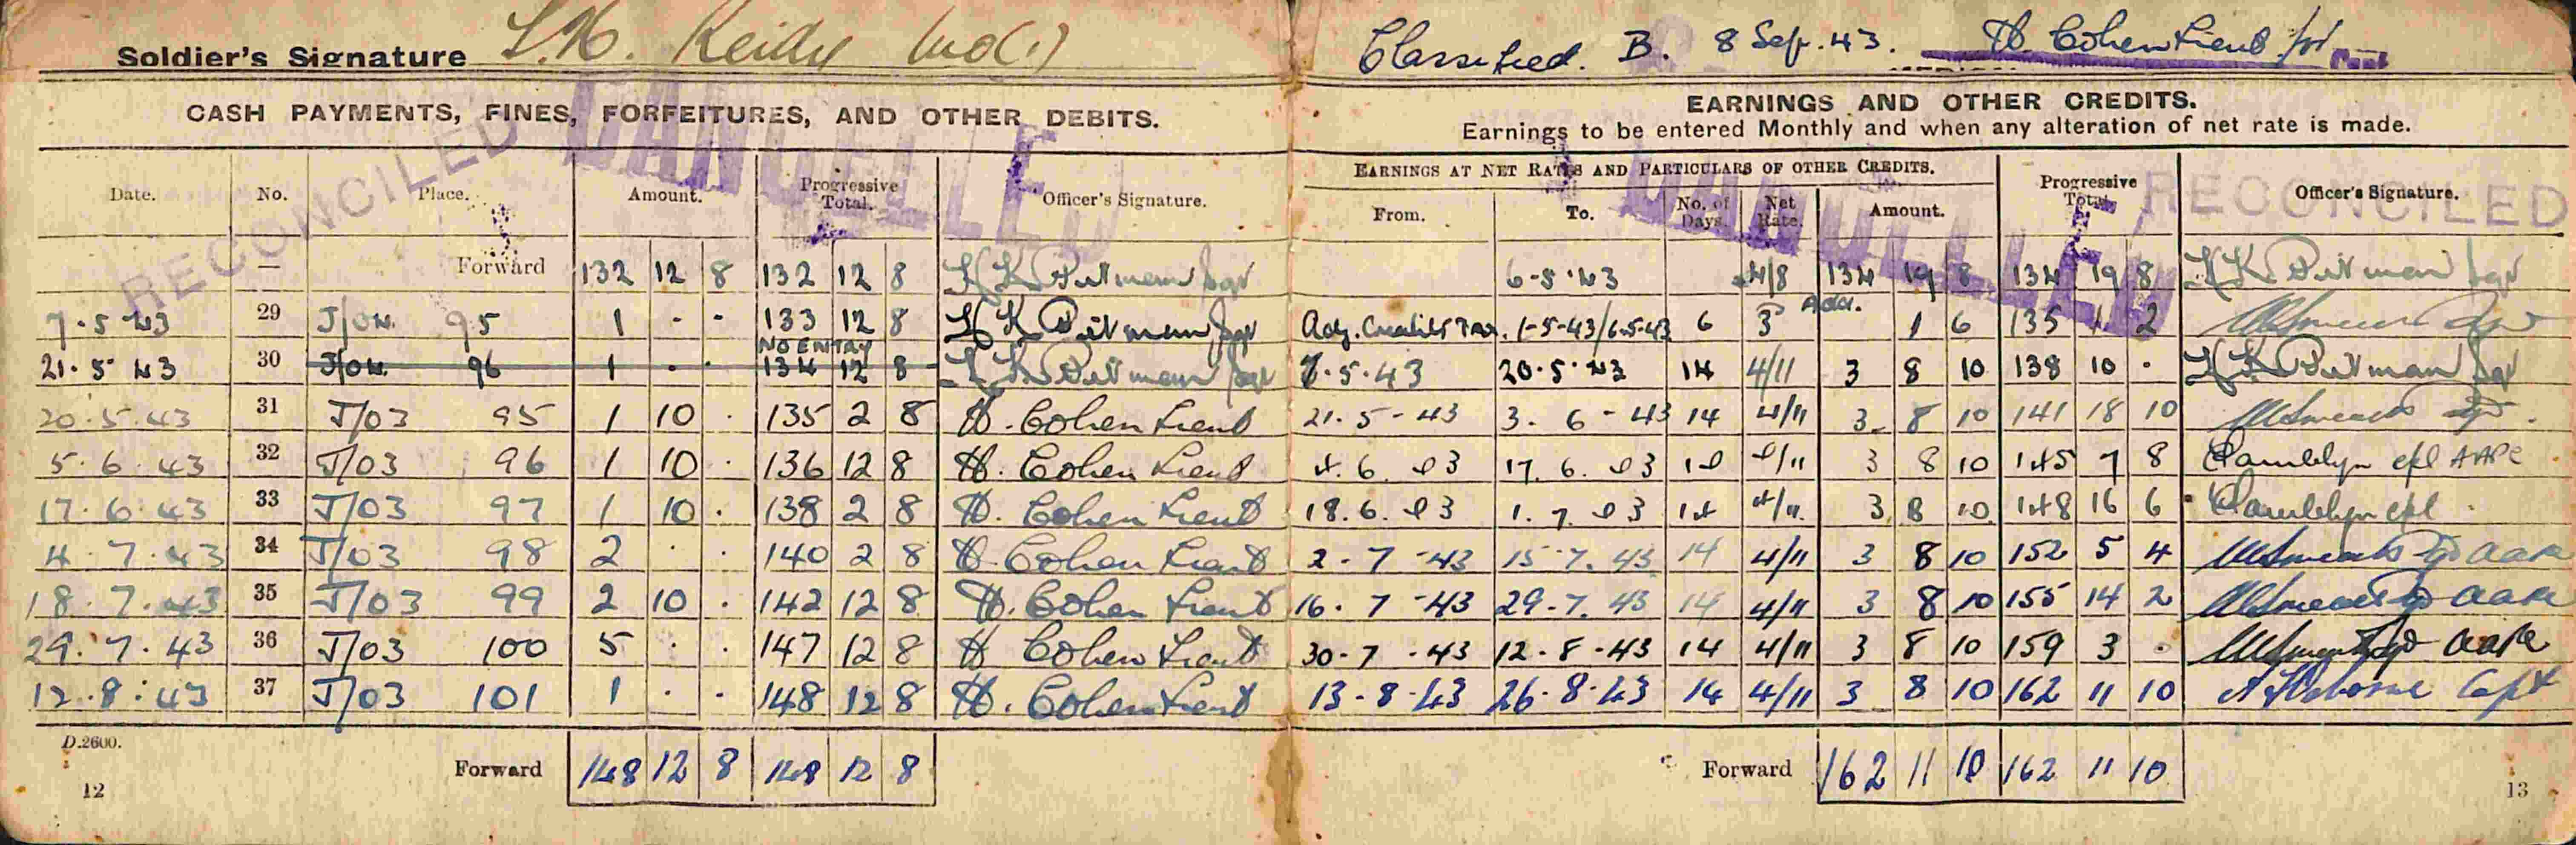 Soldier's Signature
Classified. B. 8 Sep. 43. H. Cohen Lieut
CASH PAYMENTS, FINES, FORFEITURES, AND OTHER DEBITS.
EARNINGS AND OTHER CREDITS.
Earnings to be entered Monthly and when any alteration of net rate is made.
RECONCILED CANCELLED
CANCELLED RECONCILED
EARNINGS AT NET RATES AND PARTICULARS OF OTHER CREDITS.
Date. No. Place. Amount. Progressive Total. Officer's Signature.
From. To. No. of Days. Net Rate. Amount. Progressive Total. Officer's Signature.
— Forward 132 12 8 132 12 8
6-5-43 4/8 134 19 8 134 19 8
7.5.43 29 95 1 - - 133 12 8
1-5-43/6-5-43 6 3 Add. 1 6 135 1 2
NO ENTRY
21.5.43 30 96 1 . . 134 12 8
7.5.43 20.5.43 14 4/11 3 8 10 138 10 .
20.5.43 31 J/03 95 1 10 . 135 2 8 H. Cohen Lieut
21.5-43 3.6-43 14 4/11 3 8 10 141 18 10
5.6.43 32 J/03 96 1 10 . 136 12 8 H. Cohen Lieut
4.6.43 17.6.43 14 4/11 3 8 10 145 7 8
17.6.43 33 J/03 97 1 10 . 138 2 8 H. Cohen Lieut
18.6.43 1.7.43 14 4/11 3 8 10 148 16 6
4.7.43 34 J/03 98 2 . . 140 2 8 H. Cohen Lieut
2-7-43 15-7.43 14 4/11 3 8 10 152 5 4
18.7.43 35 J/03 99 2 10 . 142 12 8 H. Cohen Lieut
16.7-43 29-7.43 14 4/11 3 8 10 155 14 2
29.7.43 36 J/03 100 5 . . 147 12 8 H Cohen Lieut
30-7-43 12-8-43 14 4/11 3 8 10 159 3 .
12.8.43 37 J/03 101 1 . . 148 12 8 H. Cohen Lieut
13-8-43 26-8-43 14 4/11 3 8 10 162 11 10 Capt
D.2600.
Forward 148 12 8 148 12 8
Forward 162 11 10 162 11 10
12
13